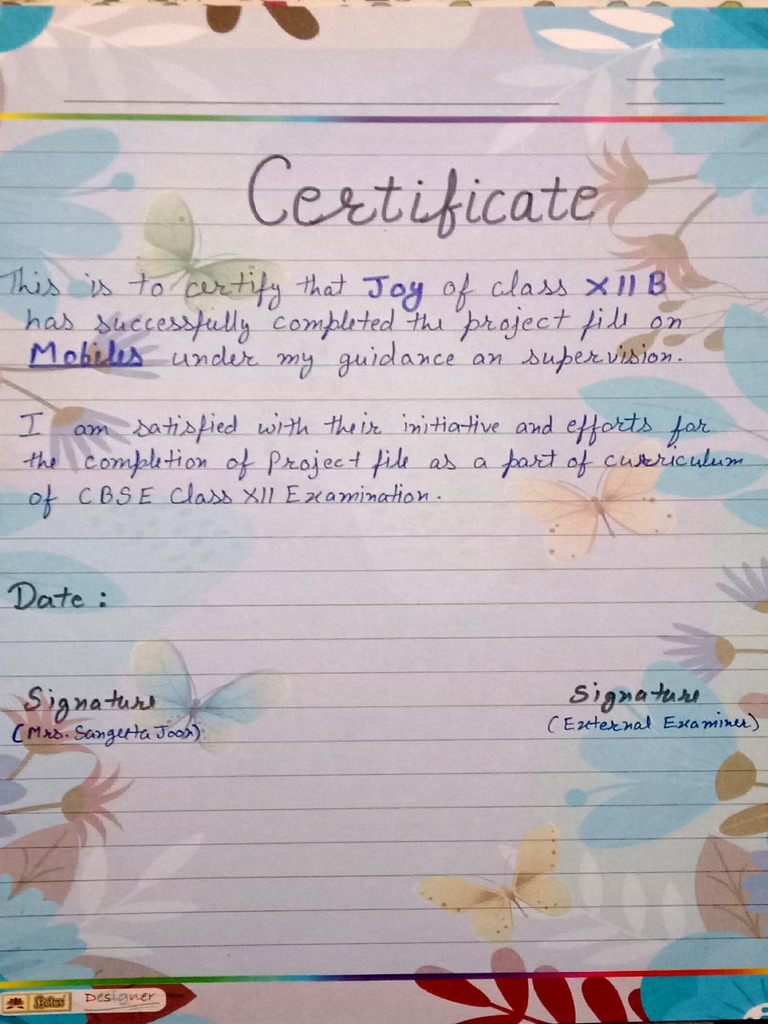 Certificate
This is to certify that Joy of class XII B
has successfully completed the project file on
Mobiles under my guidance an supervision.
I am satisfied with their initiative and efforts for
the completion of Project file as a part of curriculum
of CBSE Class XII Examination.
Date :
Signature Signature
(Mrs. Sangeeta Joon) (External Examiner)
Lotus Designer